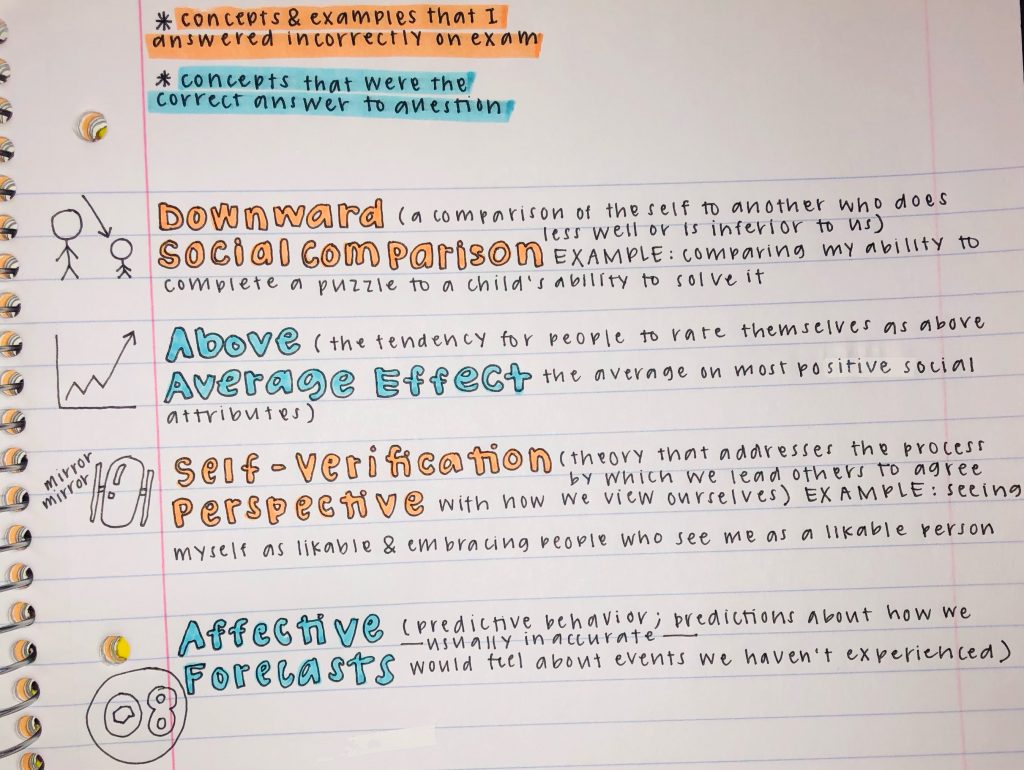 * concepts & examples that I
answered incorrectly on exam
* concepts that were the
correct answer to question
DOWNWARD (a comparison of the self to another who does
less well or is inferior to us)
SOCIAL COMPARISON EXAMPLE: comparing my ability to
complete a puzzle to a child's ability to solve it
ABOVE (the tendency for people to rate themselves as above
AVERAGE EFFECT the average on most positive social
attributes)
mirror
mirror
SELF-VERIFICATION (theory that addresses the process
by which we lead others to agree
PERSPECTIVE with how we view ourselves) EXAMPLE: seeing
myself as likable & embracing people who see me as a likable person
AFFECTIVE (predictive behavior; predictions about how we
—usually inaccurate—
FORECASTS would feel about events we haven't experienced)
8